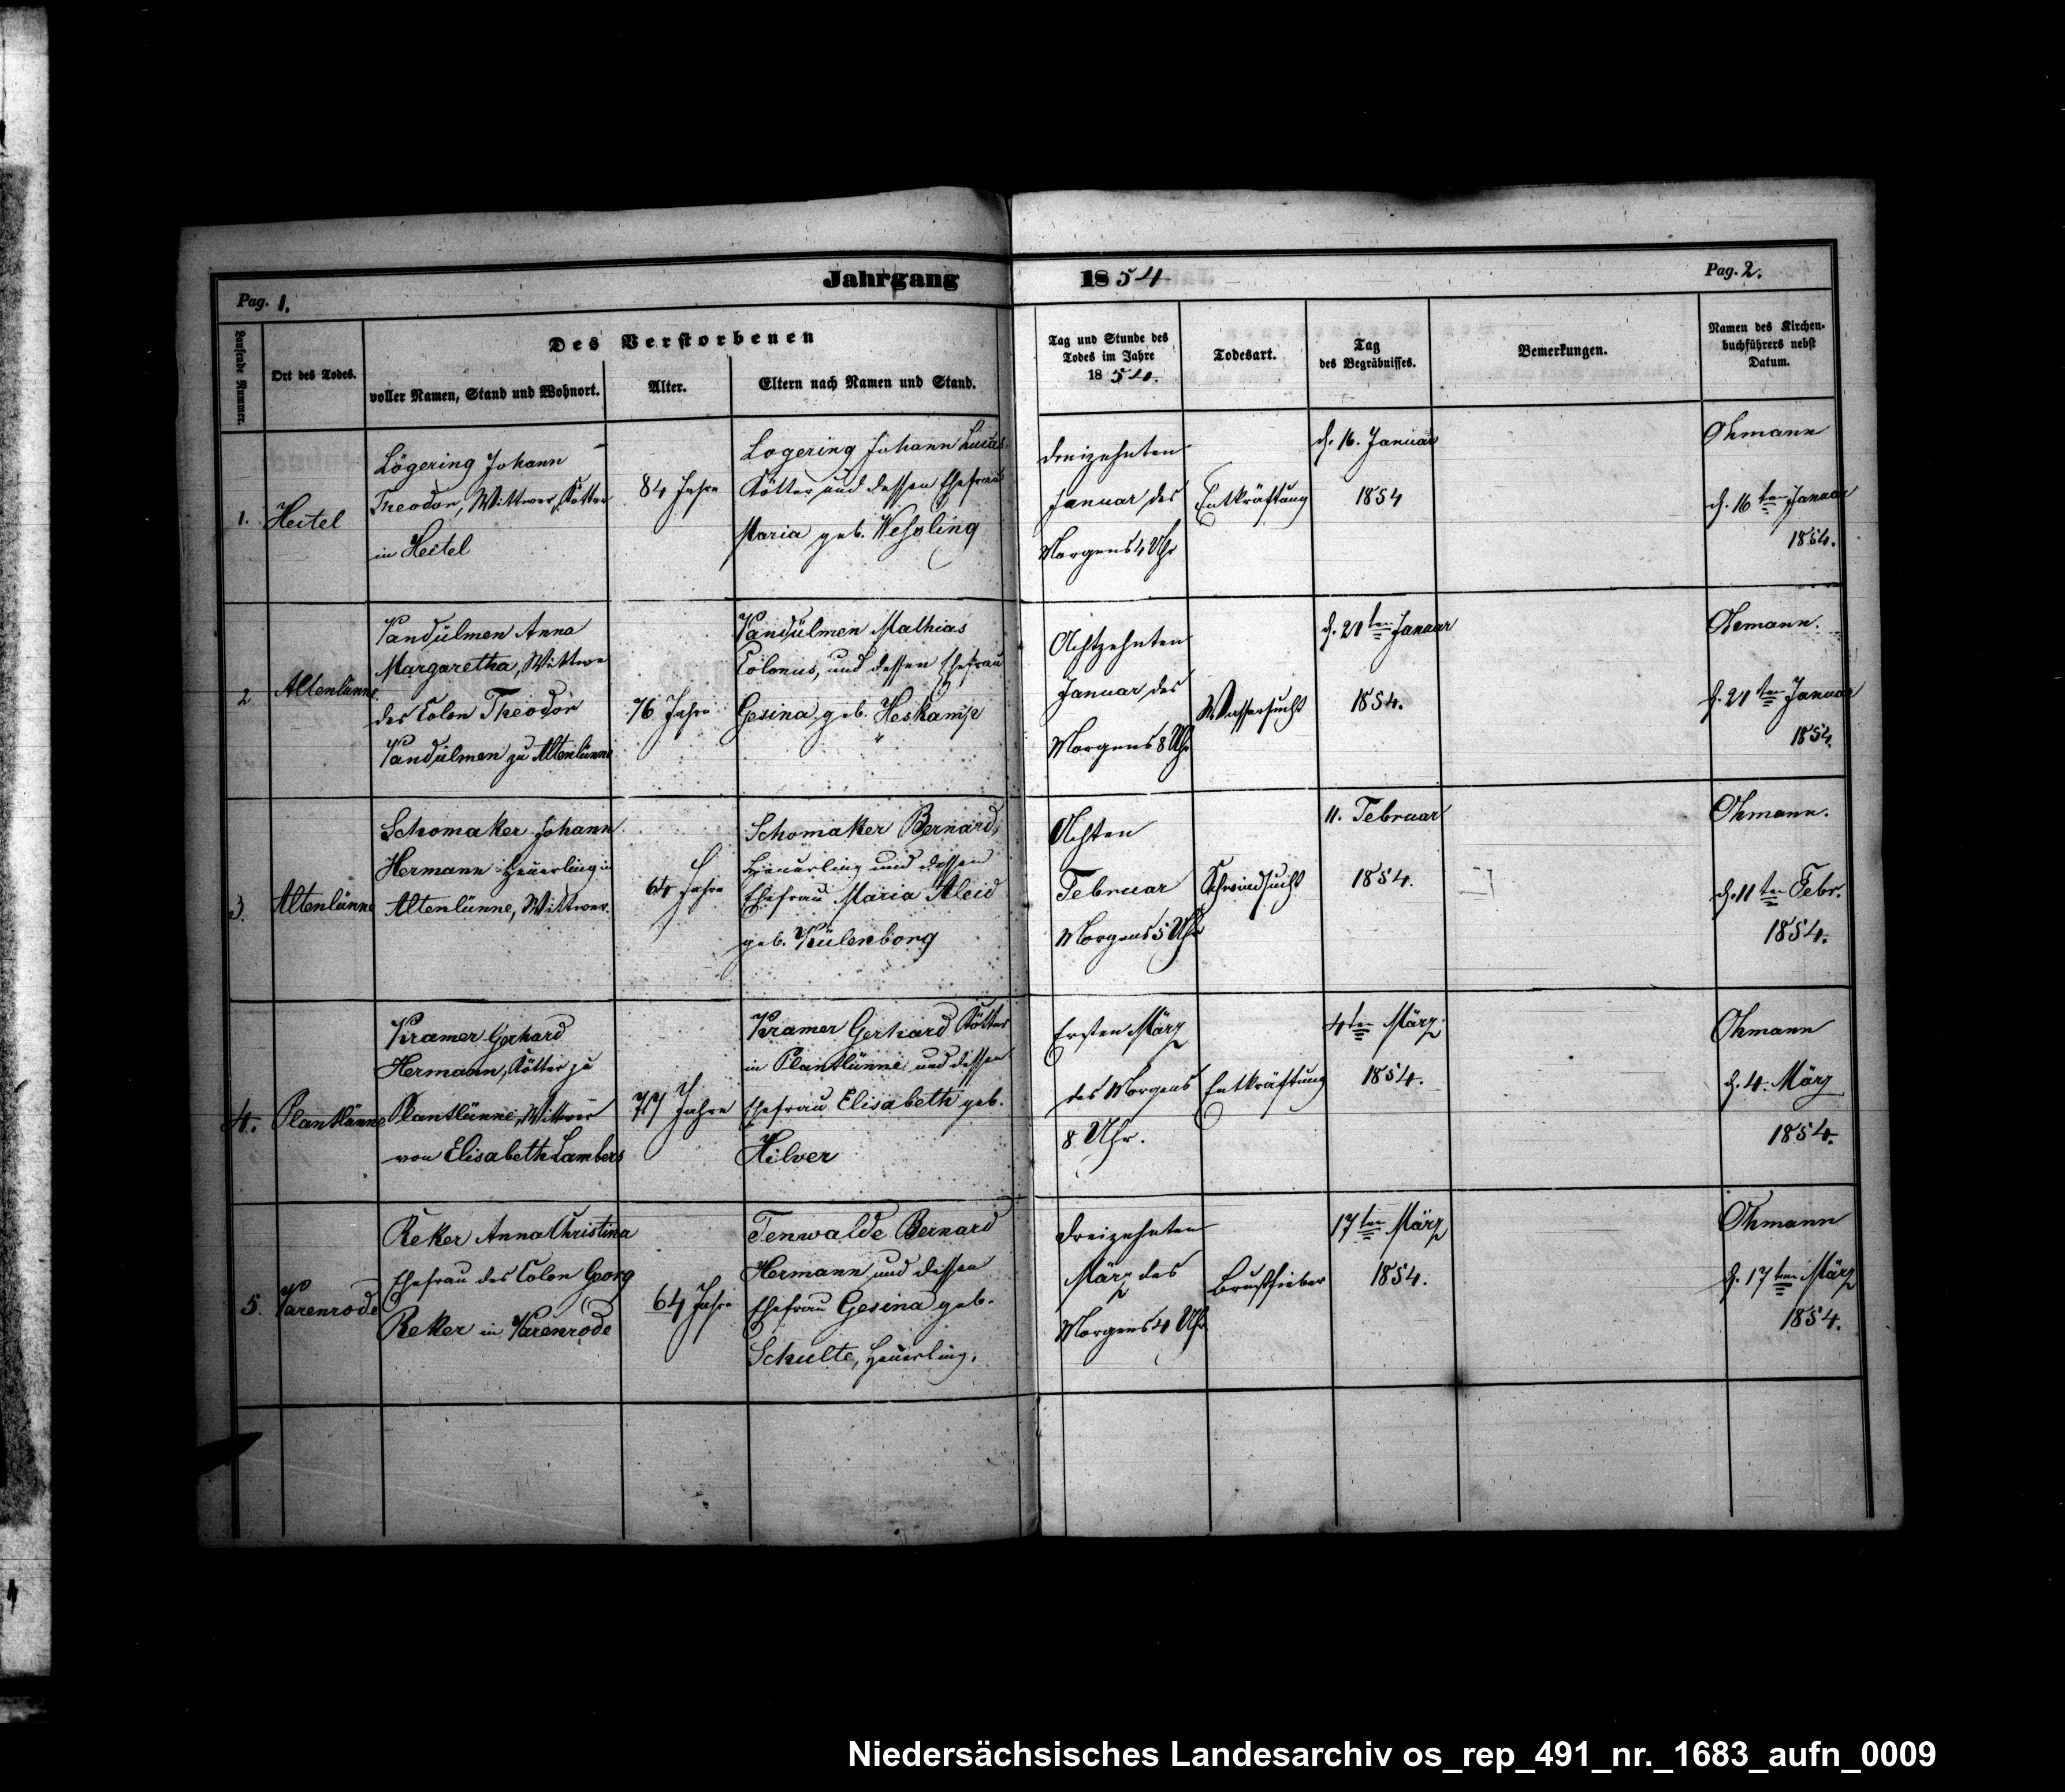 Pag. 1.
Jahrgang 1854
Pag. 2.
Laufende Nummer.
Ort des Todes.
Des Verstorbenen
voller Namen, Stand und Wohnort.
Alter.
Eltern nach Namen und Stand.
Tag und Stunde des
Todes im Jahre
1854.
Todesart.
Tag
des Begräbnisses.
Bemerkungen.
Namen des Kirchen-
buchführers nebst
Datum.
1.
Heitel
Lögering Johann
Theodor, Wittwer, Kötter
in Heitel
84 Jahre
Logering Johann Lucas
Kötter und dessen Ehefrau
Maria geb. Weßling
Dreizehnten
Januar des
Morgens 4 Uhr
Entkräftung
d. 16. Januar
1854
Ohmann
d. 16ten Januar
1854.
2
Altenlünne
Vandülmen Anna
Margaretha, Wittwe
des Colon Theodor
Vandülmen zu Altenlünne
76 Jahre
Vandülmen Mathias
Colonus, und dessen Ehefrau
Gesina, geb. Heskamp
Achtzehnten
Januar des
Morgens 8 Uhr
Wassersucht
d. 21ten Januar
1854.
Ohmann.
d. 21ten Januar
1854.
3.
Altenlünne
Schomaker Johann
Hermann Heuerling in
Altenlünne, Wittwer.
64 Jahre
Schomaker Bernard,
Heuerling und dessen
Ehefrau Maria Aleid
geb. Külenborg
Achten
Februar
Morgens 5 Uhr
Schwindsucht
11. Februar
1854.
Ohmann.
d. 11ten Febr.
1854.
4.
Plantlünne
Kramer Gerhard
Hermann, Kötter zu
Plantlünne, Wittwer
von Elisabeth Lambers
77 Jahre
Kramer Gerhard Kötter
in Plantlünne und dessen
Ehefrau Elisabeth geb.
Hilver
Ersten März
des Morgens
8 Uhr.
Entkräftung
4ten März
1854.
Ohmann
d. 4. März
1854.
5.
Varenrode
Reker Anna Christina
Ehefrau des Colon Georg
Reker in Varenrode
64 Jahre
Tenwalde Bernard
Hermann und dessen
Ehefrau Gesina geb.
Schulte, Heuerling.
Dreizehnten
März des
Morgens 4 Uhr
Brustfieber
17ten März
1854.
Ohmann
d. 17ten März
1854.
Niedersächsisches Landesarchiv os_rep_491_nr._1683_aufn_0009